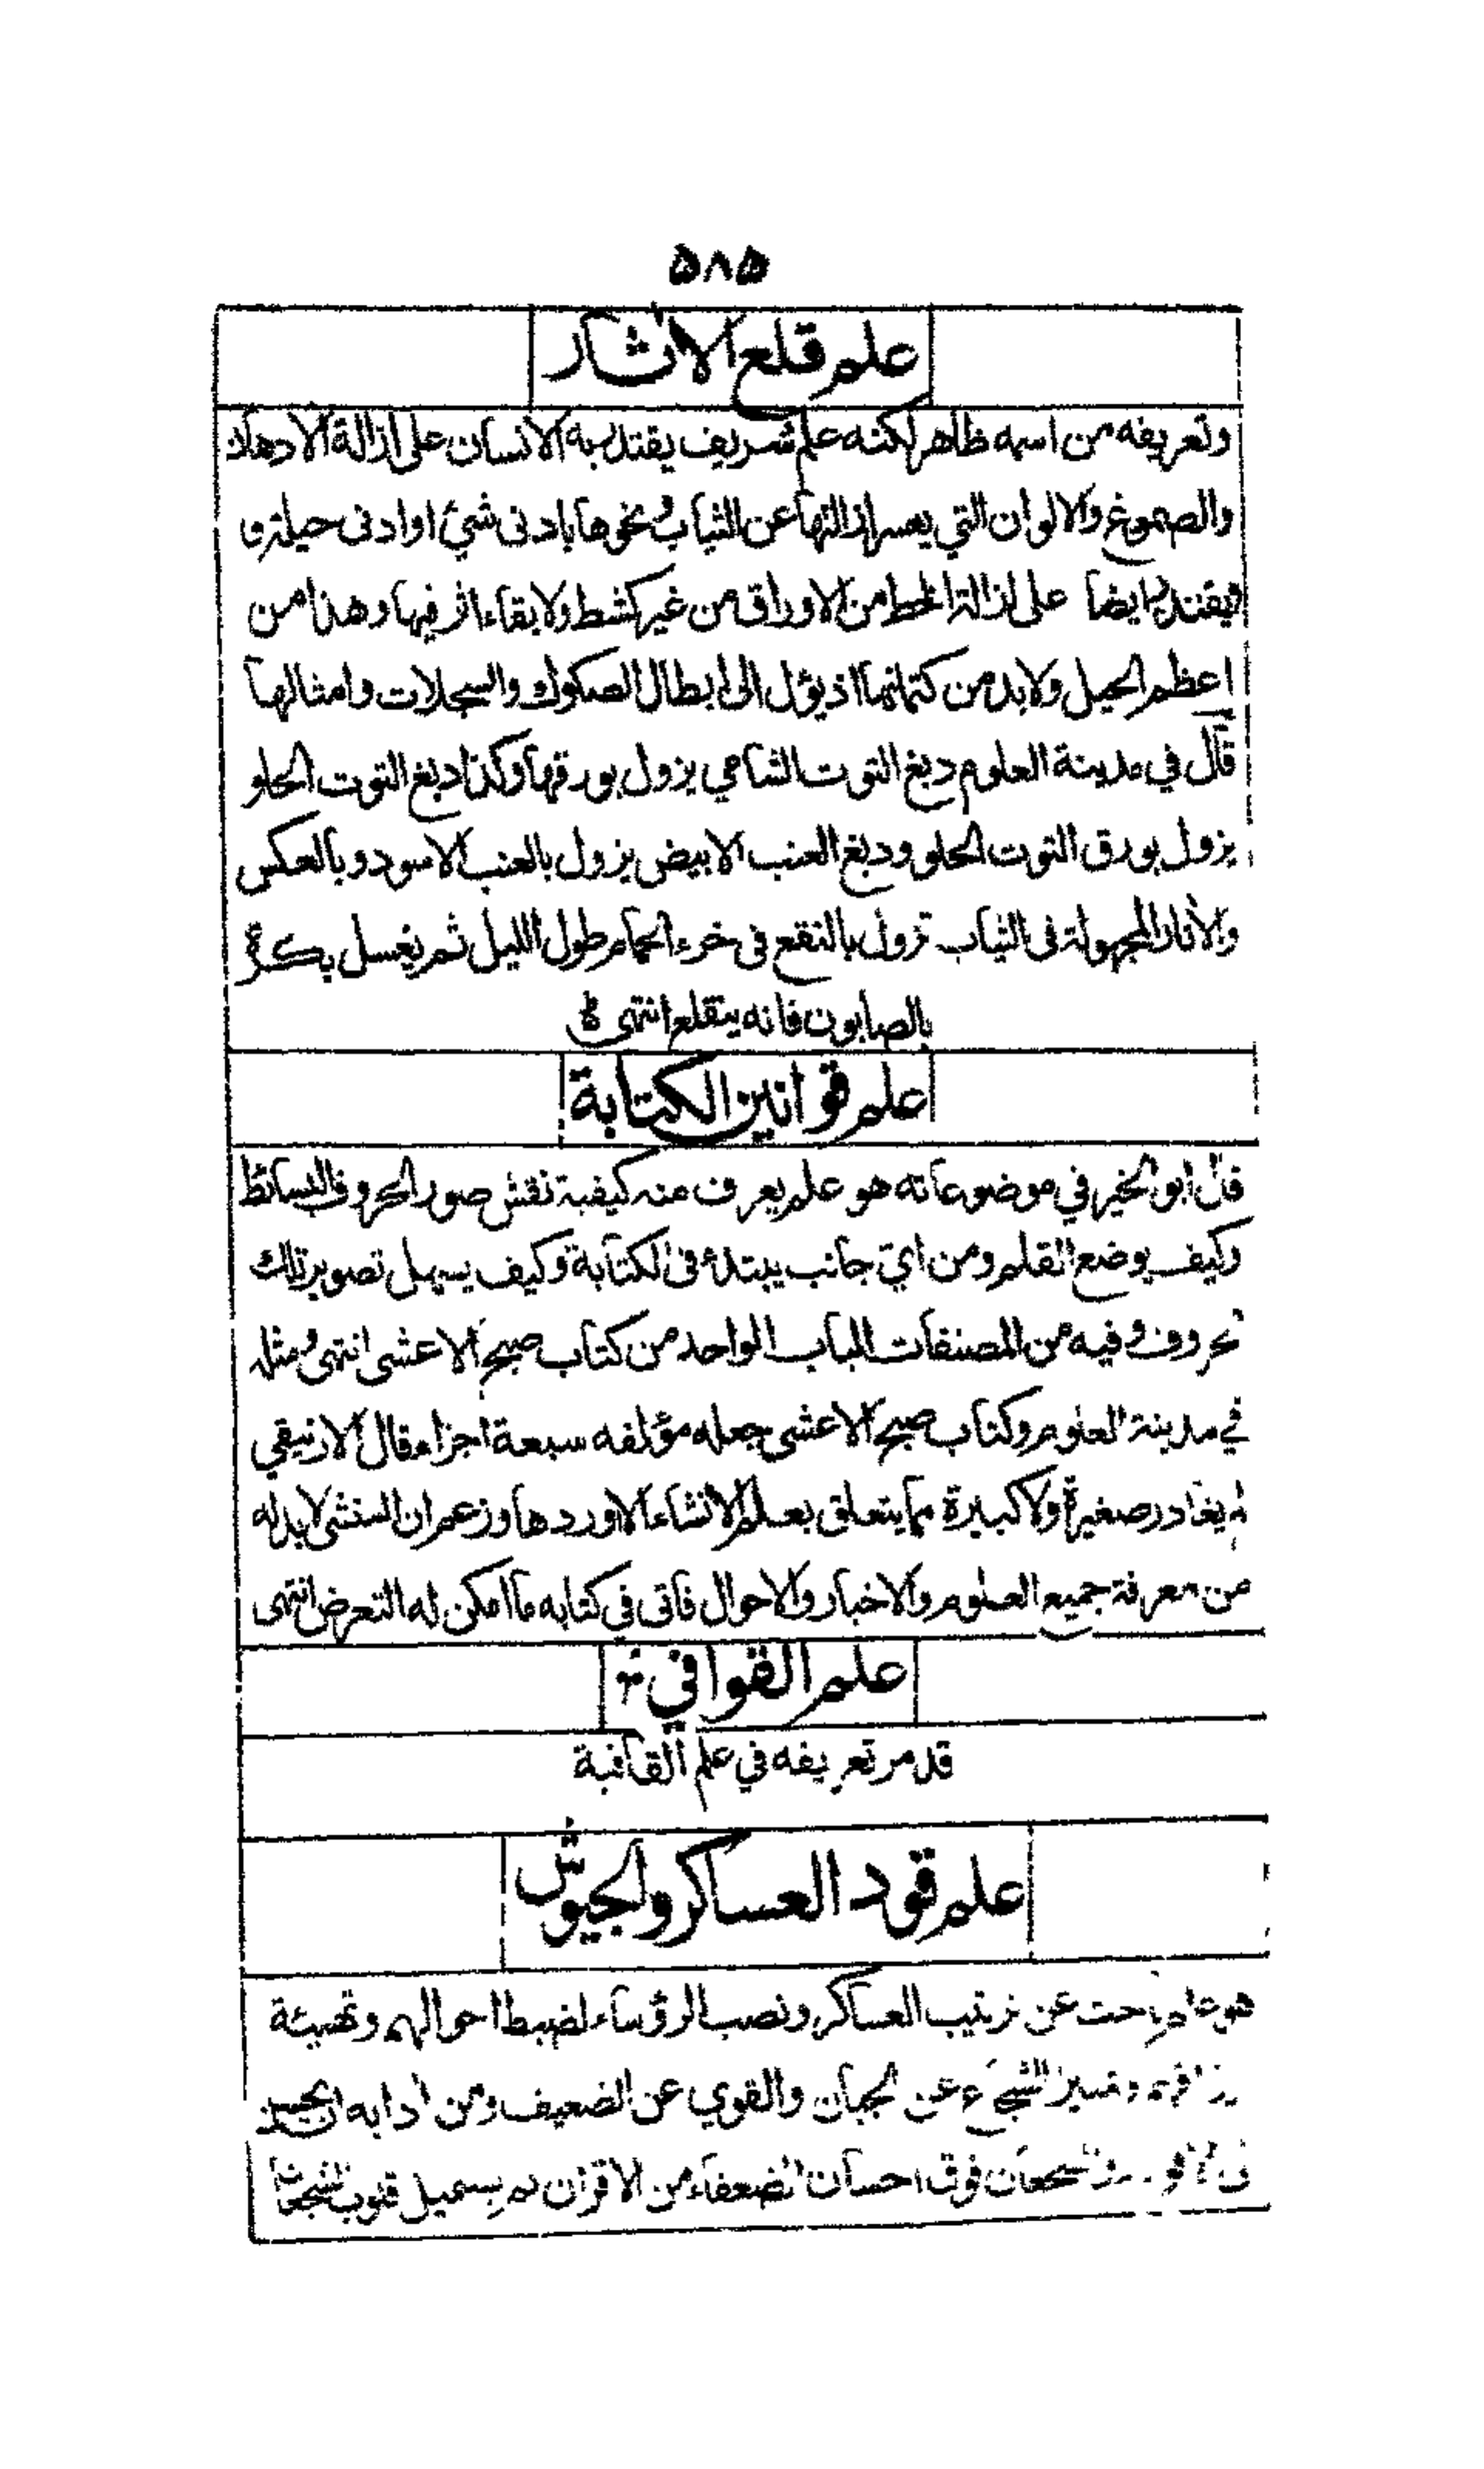 ٥٨٥
علم قلع الاثار
وتعريفه من اسمه ظاهر لكنه علم شريف يقتدر به الانسان على ازالة الادهان
والصموغ والالوان التي يعسر ازالتها عن الثياب ونحوها بادنى شئ او ادنى حيلة و
يقتدر ايضا على ازالة الخط من الاوراق من غير كشط ولا بقاء اثر فيها وهذا من
اعظم الحيل ولا بد من كتمانها اذ يؤل الى ابطال الصكوك والسجلات وامثالها
قال في مدينة العلوم دبغ التوت الشامي يزول بورقها وكذا دبغ التوت الحلو
يزول بورق التوت الحلو ودبغ العنب الابيض يزول بالعنب الاسود وبالعكس
والأثار المجهولة فى الثياب تزول بالنقع فى خرء الحمام طول الليل ثم يغسل بكرة
بالصابون فانه ينقلع انتهى
علم قوانين الكتابة
قال ابو الخير في موضوعاته هو علم يعرف منه كيفية نقش صور الحروف البسائط
وكيف يوضع القلم ومن اي جانب يبتدئ فى الكتابة وكيف يسهل تصوير تلك
الحروف وفيه من المصنفات الباب الواحد من كتاب صبح الاعشى انتهى ومثله
في مدينة العلوم وكتاب صبح الاعشى جعله مؤلفه سبعة اجزاء قال الارنيقي
لم يغادر صغيرة ولا كبيرة مما يتعلق بعلم الانشاء الا وردها وزعم ان المنشى لا بد له
من معرفة جميع العلوم والاخبار والاحوال فاتى في كتابه ما امكن له التعرض انتهى
علم القوافي
قد مر تعريفه في علم القافية
علم قود العساكر والجيوش
هو علم باحث عن ترتيب العساكر ونصب الرؤساء لضبط احوالهم وتهيئة
ارزاقهم وتمييز الشجاع عن الجبان والقوي عن الضعيف ومن ادابه ان
الشجعان فوق احسان الضعفاء من الاقران قلوب الشجعان